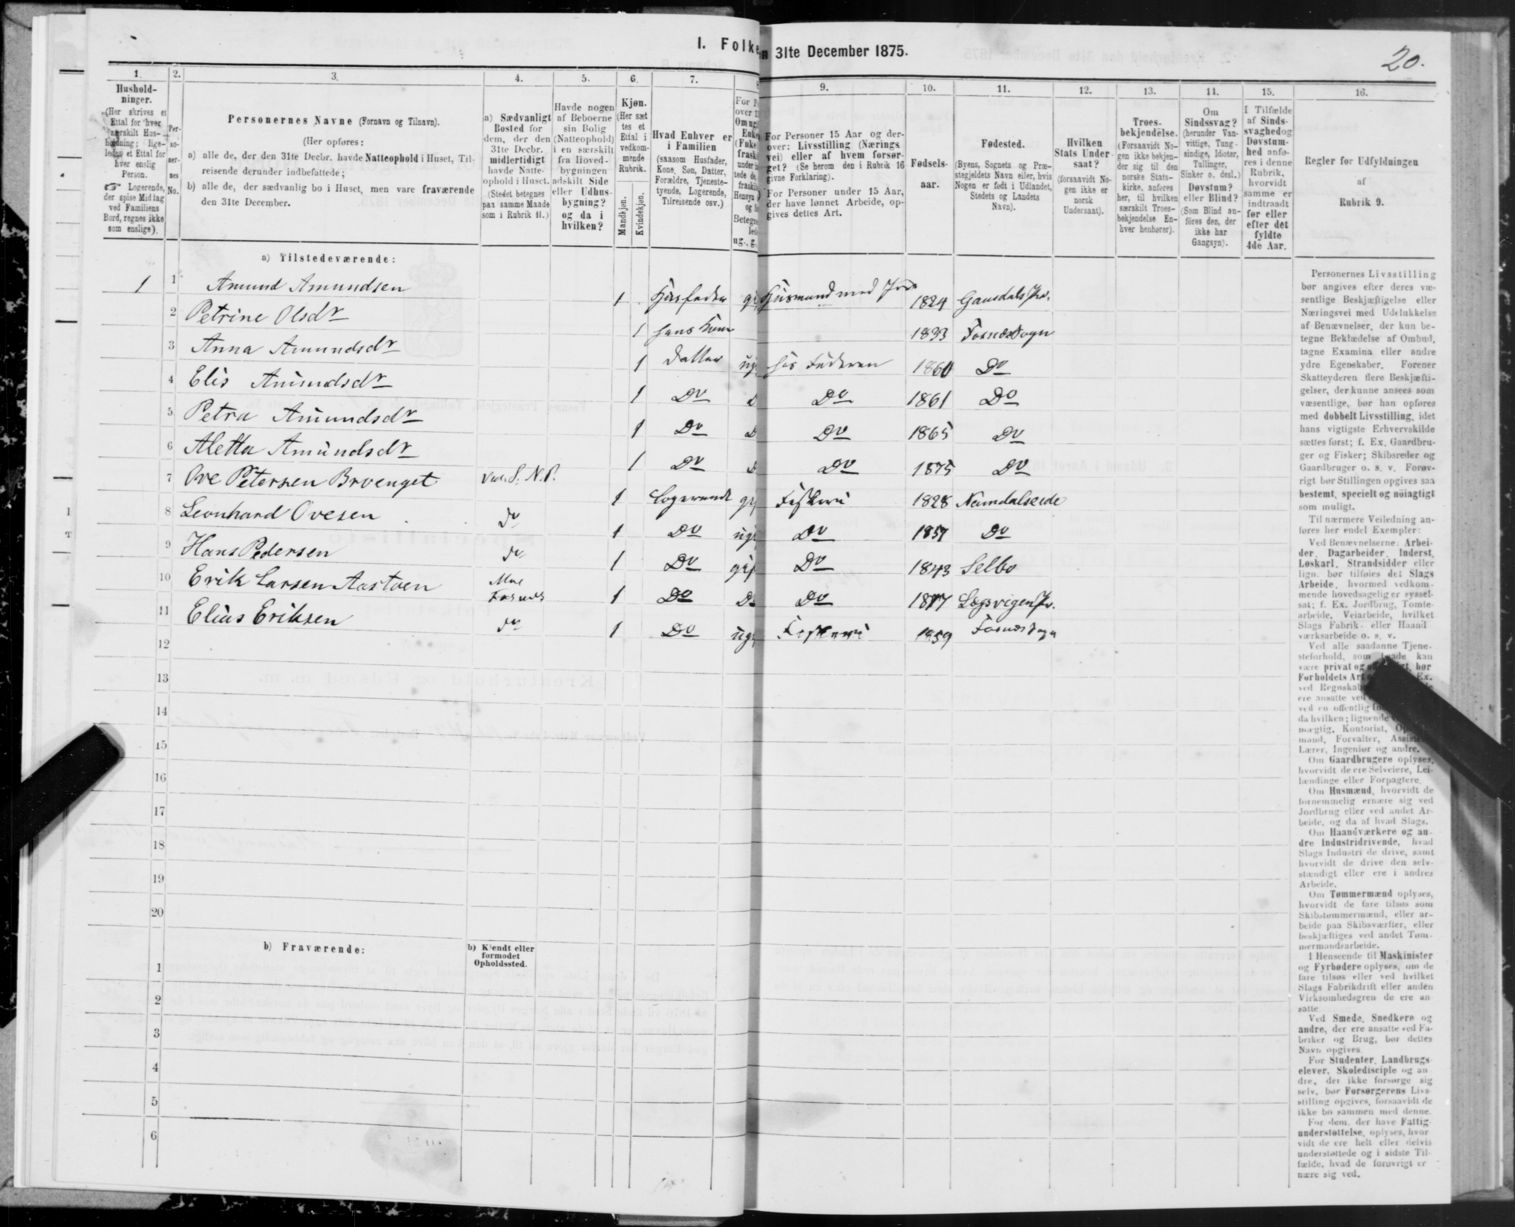 I. Folke
n 31te December 1875.
20.
1. 2. 3. 4. 5. 6. 7. 8 9. 10. 11. 12. 13. 14. 15. 16.
Hushold-
ninger.
(Her skrives et
Ettal for hver
særskilt Hus-
holdning; lige-
ledes et Ettal for
hver enslig
Person.
☞ Logerende,
der spise Middag
ved Familiens
Bord, regnes ikke
som enslige).
Per-
so-
ner-
nes
No.
Personernes Navne (Fornavn og Tilnavn).
(Her opføres:
a) alle de, der den 31te Decbr. havde Natteophold i Huset, Til-
reisende derunder indbefattede;
b) alle de, der sædvanlig bo i Huset, men vare fraværende
den 31te December.
a) Sædvanligt
Bosted for
dem, der den
31te Decbr.
midlertidigt
havde Natte-
ophold i Huset.
(Stedet betegnes
paa samme Maade
som i Rubrik 11.)
Havde nogen
af Beboerne
sin Bolig
(Natteophold)
i en særskilt
fra Hoved-
bygningen
adskilt Side
eller Udhus-
bygning?
og da i
hvilken?
Kjøn.
(Her sæt
tes et
Ettal i
vedkom-
mende
Rubrik.
Mandkjøn.
Kvindekjøn.
Hvad Enhver er
i Familien
(saasom Husfader,
Kone, Søn, Datter,
Forældre, Tjeneste-
tyende, Logerende,
Tilreisende osv.)
For Personer 15 Aar og der-
over: Livsstilling (Nærings
vei) eller af hvem forsør-
get? (Se herom den i Rubrik 16
givne Forklaring).
For Personer under 15 Aar,
der have lønnet Arbeide, op-
gives dettes Art.
Fødsels-
aar.
Fødested.
(Byens, Sognets og Præ-
stegjeldets Navn eller, hvis
Nogen er født i Udlandet,
Stedets og Landets
Navn).
Hvilken
Stats Under-
saat?
(forsaavidt No-
gen ikke er
norsk
Undersaat).
Troes-
bekjendelse.
(Forsaavidt No-
gen ikke bekjen-
der sig til den
norske Stats-
kirke, anføres
her, til hvilken
særskilt Troes-
bekjendelse En-
hver henhører).
Om
Sindssvag?
(herunder Van-
vittige, Tung-
sindige, Idioter,
Tullinger,
Sinker o. desl.)
Døvstum?
eller Blind?
(Som Blind an-
føres den, der
ikke har
Gangsyn).
I Tilfælde
af Sinds-
svaghed og
Døvstum-
hed anfø-
res i denne
Rubrik,
hvorvidt
samme er
indtraadt
før eller
efter det
fyldte
4de Aar.
Regler for Udfyldningen
af
Rubrik 9.
a) Tilstedeværende:
1 1 Amund Amundsen 1 Husfader gi Husmand med Jord 1824 Gausdals Pr.
2 Petrine Olsdr 1 hans Kone 1833 Fosnes Sogn
3 Anna Amundsdr 1 Datter ug hos Faderen 1860 Do
4 Elis Amundsdr 1 Do Do 1861 Do
5 Petra Amundsdr 1 Do Do 1865 Do
6 Aletta Amundsdr 1 Do Do 1875 Do
7 Ove Petersen Brvenget 1 Logerende gi Fiskeri 1828 Namdalseide
8 Leonhard Ovesen do 1 Do ug Do 1857 Do
9 Hans Pedersen do 1 Do gi Do 1843 Selbo
10 Erik Larsen Aastven Fosnes 1 Do Do Do
11 Elias Eriksen do 1 Do ug Fiskeri 1859 Fosnes Sogn
12
13
14
15
16
17
18
19
20
b) Fraværende:
b) Kjendt eller
formodet
Opholdssted.
1
2
3
4
5
6
Personernes Livsstilling
bør angives efter deres væ-
sentlige Beskjæftigelse eller
Næringsvei med Udelukkelse
af Benævnelser, der kun be-
tegne Beklædelse af Ombud,
tagne Examina eller andre
ydre Egenskaber. Forener
Skatteyderen flere Beskjæfti-
gelser, der kunne ansees som
væsentlige, bør han opføres
med dobbelt Livsstilling, idet
hans vigtigste Erhvervskilde
sættes først; f. Ex. Gaardbru-
ger og Fisker; Skibsreder og
Gaardbruger o. s. v. Forøv-
rigt bør Stillingen opgives saa
bestemt, specielt og nøiagtigt
som muligt.
Til nærmere Veiledning an-
føres her endel Exempler:
Ved Benævnelserne: Arbei-
der, Dagarbeider, Inderst,
Løskarl, Strandsidder eller
lign. bør tilføies det Slags
Arbeide, hvormed vedkom-
mende hovedsagelig er syssel-
sat; f. Ex. Jordbrug, Tomte-
arbeide, Veiarbeide, hvilket
Slags Fabrik- eller Haand
værksarbeide o. s. v.
Ved alle saadanne Tjene-
steforhold, som
være privat og
Forholdets Art
ved Regnskab
ere ansatte ved
ved en offentlig
da hvilken; lignende
mægtig, Kontorist,
mand, Forvalter,
Lærer, Ingeniør og andre.
Om Gaardbrugere oplyses,
hvorvidt de ere Selveiere, Lei-
lændinge eller Forpagtere.
Om Husmænd, hvorvidt de
fornemmelig ernære sig ved
Jordbrug eller ved andet Ar-
beide, og da af hvad Slags.
Om Haandværkere og an-
dre Industridrivende, hvad
Slags Industri de drive, samt
hvorvidt de drive den selv-
stændigt eller ere i andres
Arbeide.
Om Tømmermænd oplyses,
hvorvidt de fare tilsøs som
Skibstømmermænd, eller ar-
beide paa Skibsværfter, eller
beskjæftiges ved andet Tøm-
mermandsarbeide.
I Henseende til Maskinister
og Fyrbødere oplyses, om de
fare tilsøs eller ved hvilket
Slags Fabrikdrift eller anden
Virksomhedsgren de ere an-
satte
Ved Smede, Snedkere og
andre, der ere ansatte ved Fa-
briker og Brug, bør dettes
Navn opgives.
For Studenter, Landbrugs-
elever, Skoledisciple og an
dre, der ikke forsørge sig
selv, bør Forsørgerens Livs-
stilling opgives, forsaavidt de
ikke bo sammen med denne.
For dem, der have Fattig-
understøttelse, oplyses, hvor
vidt de ere helt eller delvis
understøttede og i sidste Til-
fælde, hvad de forøvrigt er
nære sig ved.